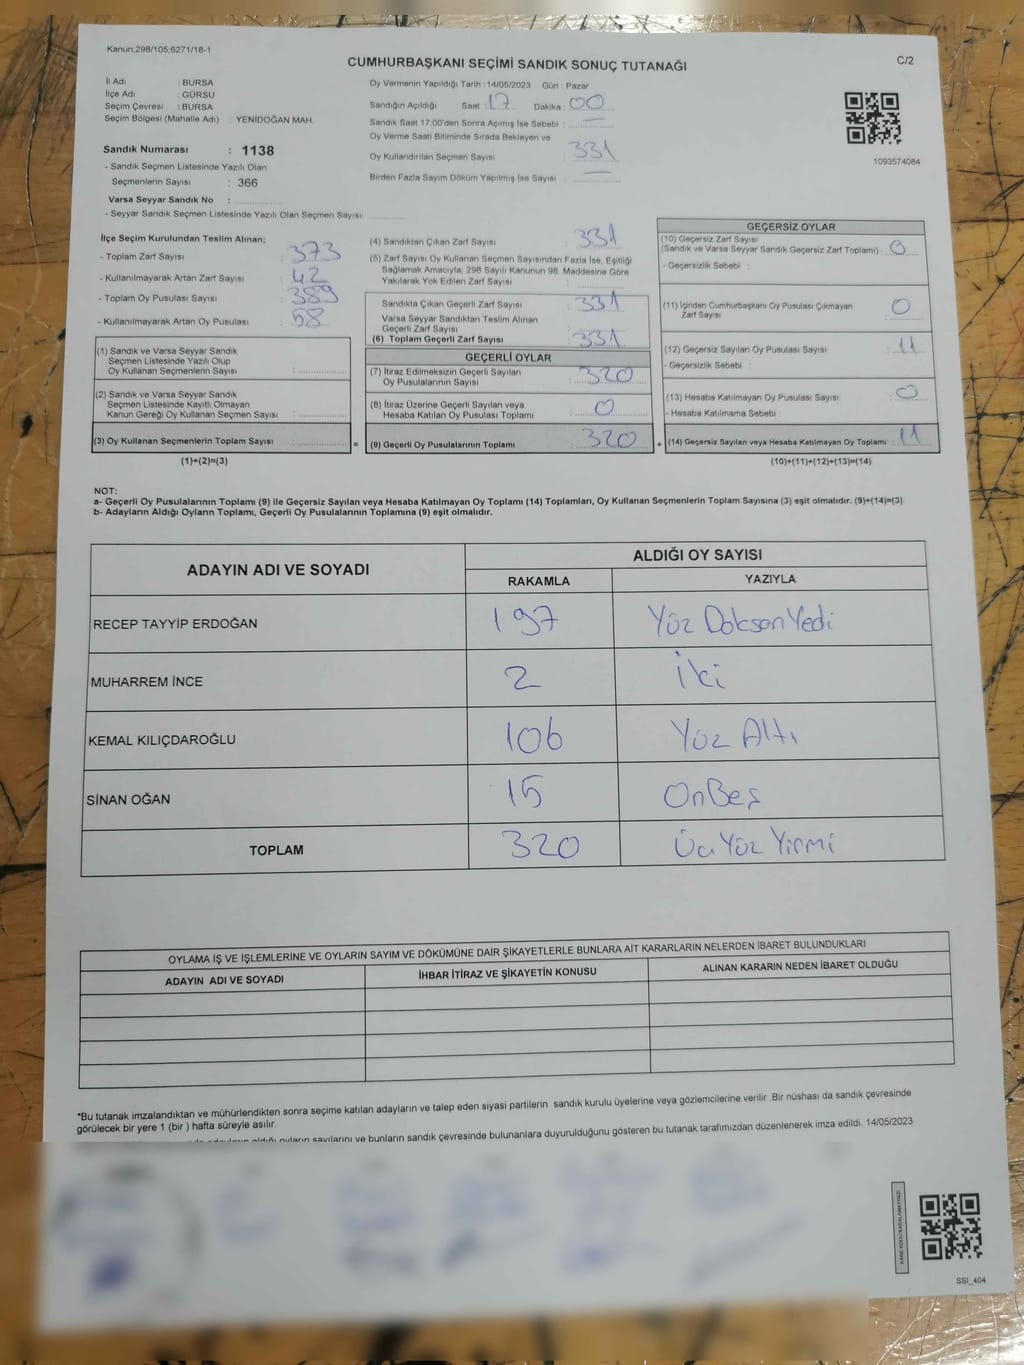 Kanun;298/105;6271/18-1
CUMHURBAŞKANI SEÇİMİ SANDIK SONUÇ TUTANAĞI
C/2
İl Adı : BURSA
İlçe Adı : GÜRSU
Seçim Çevresi : BURSA
Seçim Bölgesi (Mahalle Adı) : YENİDOĞAN MAH.
Sandık Numarası : 1138
- Sandık Seçmen Listesinde Yazılı Olan
Seçmenlerin Sayısı : 366
Varsa Seyyar Sandık No :
- Seyyar Sandık Seçmen Listesinde Yazılı Olan Seçmen Sayısı:
Oy Vermenin Yapıldığı Tarih : 14/05/2023 Gün : Pazar
Sandığın Açıldığı Saat : 17 Dakika : 00
Sandık Saat 17:00'den Sonra Açımış İse Sebebi : —
Oy Verme Saati Bitiminde Sırada Bekleyen ve
Oy Kullandırılan Seçmen Sayısı : 331
Birden Fazla Sayım Döküm Yapılmış İse Sayısı : —
1093574084
İlçe Seçim Kurulundan Teslim Alınan;
- Toplam Zarf Sayısı : 373
- Kullanılmayarak Artan Zarf Sayısı : 42
- Toplam Oy Pusulası Sayısı : 389
- Kullanılmayarak Artan Oy Pusulası : 58
(1) Sandık ve Varsa Seyyar Sandık
Seçmen Listesinde Yazılı Olup
Oy Kullanan Seçmenlerin Sayısı :
(2) Sandık ve Varsa Seyyar Sandık
Seçmen Listesinde Kayıtlı Olmayan
Kanun Gereği Oy Kullanan Seçmen Sayısı :
(3) Oy Kullanan Seçmenlerin Toplam Sayısı :
(1)+(2)=(3)
(4) Sandıktan Çıkan Zarf Sayısı : 331
(5) Zarf Sayısı Oy Kullanan Seçmen Sayısından Fazla İse, Eşitliği
Sağlamak Amacıyla, 298 Sayılı Kanunun 98. Maddesine Göre
Yakılarak Yok Edilen Zarf Sayısı :
Sandıkta Çıkan Geçerli Zarf Sayısı : 331
Varsa Seyyar Sandıktan Teslim Alınan
Geçerli Zarf Sayısı :
(6) Toplam Geçerli Zarf Sayısı : 331
=
GEÇERLİ OYLAR
(7) İtiraz Edilmeksizin Geçerli Sayılan
Oy Pusulalarının Sayısı : 320
(8) İtiraz Üzerine Geçerli Sayılan veya
Hesaba Katılan Oy Pusulası Toplamı : 0
(9) Geçerli Oy Pusulalarının Toplamı : 320
+
GEÇERSİZ OYLAR
(10) Geçersiz Zarf Sayısı
(Sandık ve Varsa Seyyar Sandık Geçersiz Zarf Toplamı) : 0
- Geçersizlik Sebebi :
(11) İçinden Cumhurbaşkanı Oy Pusulası Çıkmayan
Zarf Sayısı : 0
(12) Geçersiz Sayılan Oy Pusulası Sayısı : 11
- Geçersizlik Sebebi :
(13) Hesaba Katılmayan Oy Pusulası Sayısı : 0
- Hesaba Katılmama Sebebi :
(14) Geçersiz Sayılan veya Hesaba Katılmayan Oy Toplamı : 11
(10)+(11)+(12)+(13)=(14)
NOT:
a- Geçerli Oy Pusulalarının Toplamı (9) ile Geçersiz Sayılan veya Hesaba Katılmayan Oy Toplamı (14) Toplamları, Oy Kullanan Seçmenlerin Toplam Sayısına (3) eşit olmalıdır. (9)+(14)=(3)
b- Adayların Aldığı Oyların Toplamı, Geçerli Oy Pusulalarının Toplamına (9) eşit olmalıdır.
ADAYIN ADI VE SOYADI
ALDIĞI OY SAYISI
RAKAMLA YAZIYLA
RECEP TAYYİP ERDOĞAN 197 Yüz Doksan Yedi
MUHARREM İNCE 2 İki
KEMAL KILIÇDAROĞLU 106 Yüz Altı
SİNAN OĞAN 15 OnBeş
TOPLAM 320 Üç Yüz Yirmi
OYLAMA İŞ VE İŞLEMLERİNE VE OYLARIN SAYIM VE DÖKÜMÜNE DAİR ŞİKAYETLERLE BUNLARA AİT KARARLARIN NELERDEN İBARET BULUNDUKLARI
ADAYIN ADI VE SOYADI İHBAR İTİRAZ VE ŞİKAYETİN KONUSU ALINAN KARARIN NEDEN İBARET OLDUĞU
*Bu tutanak imzalandıktan ve mühürlendikten sonra seçime katılan adayların ve talep eden siyasi partilerin sandık kurulu üyelerine veya gözlemcilerine verilir .Bir nüshası da sandık çevresinde
görülecek bir yere 1 (bir ) hafta süreyle asılır.
adayların aldığı oyların sayılarını ve bunların sandık çevresinde bulunanlara duyurulduğunu gösteren bu tutanak tarafımızdan düzenlenerek imza edildi. 14/05/2023
SSI_404